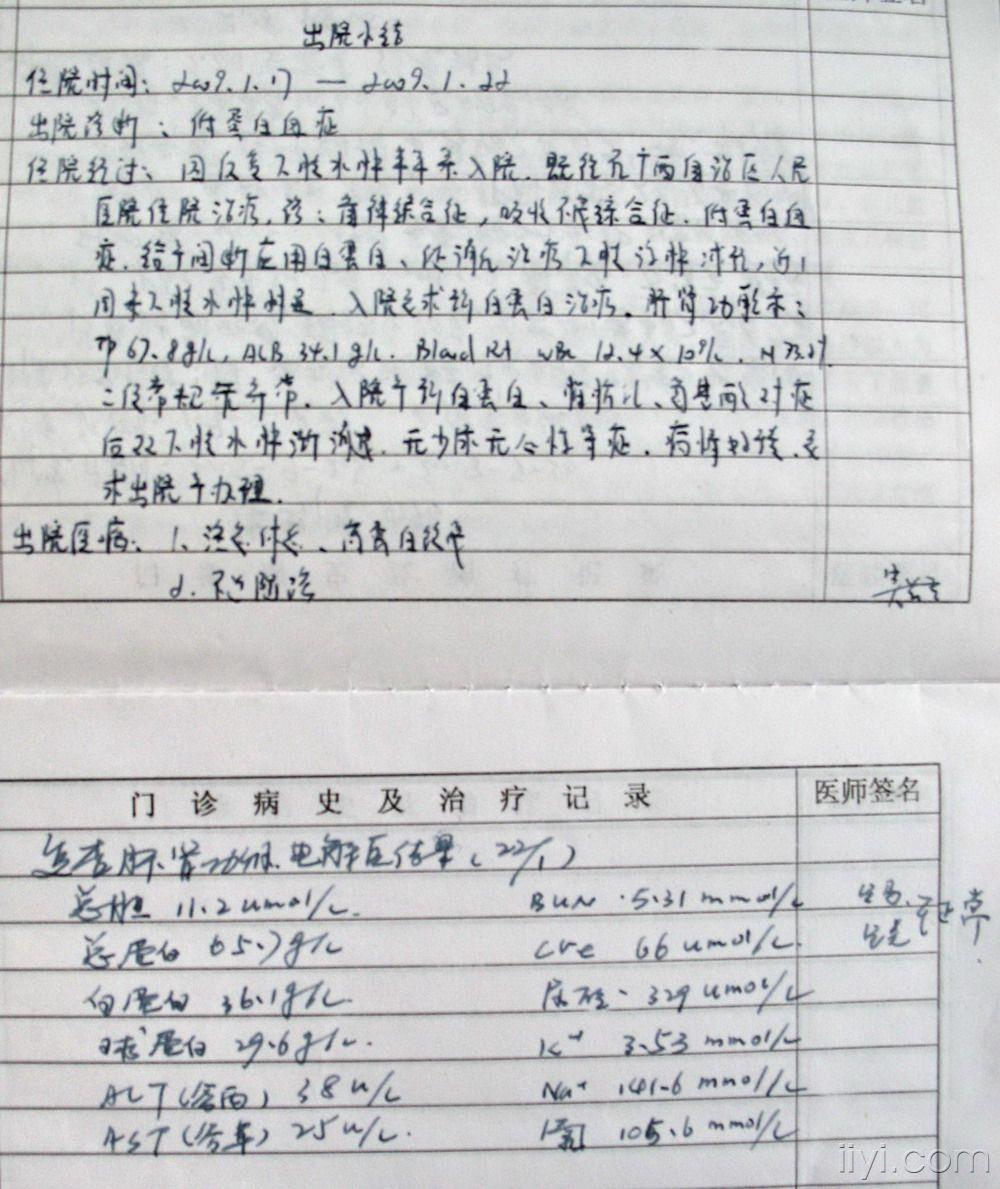 出院小结
住院时间：2009.1.17 — 2009.1.22
出院诊断：低蛋白血症
住院经过：因反复下肢水肿 入院.既往在广西自治区人民
医院住院治疗,诊：肾病综合征,吸收不良综合征.低蛋白血
症.给予间断应用白蛋白、 治疗下肢 肿 ,近1
周来下肢水肿 .入院要求输白蛋白治疗.肝肾功能示：
TP 67.8g/L, ALB 34.1g/L. Blood Rt WBC 12.4×10⁹/L. N
二便常规无异常.入院予输白蛋白、 对症
后双下肢水肿渐消退.无少尿无 等症.病情好转.要
求出院予办理.
出院医嘱：1. 注意休息、高蛋白饮食
2. 防治
门诊病史及治疗记录 医师签名
复查肝.肾功能.电解质结果(22/1)
总胆 11.2 umol/L. BUN 5.31 mmol/L
总蛋白 65.7g/L cre 66 umol/L.
白蛋白 36.1g/L. 尿酸. 329 umol/L
球蛋白 29.6g/L. K⁺ 3.53 mmol/L
ALT(谷丙) 38 u/L Na⁺ 141.6 mmol/L
AST(谷草) 25 u/L. 氯 105.6 mmol/L
iiyi.com